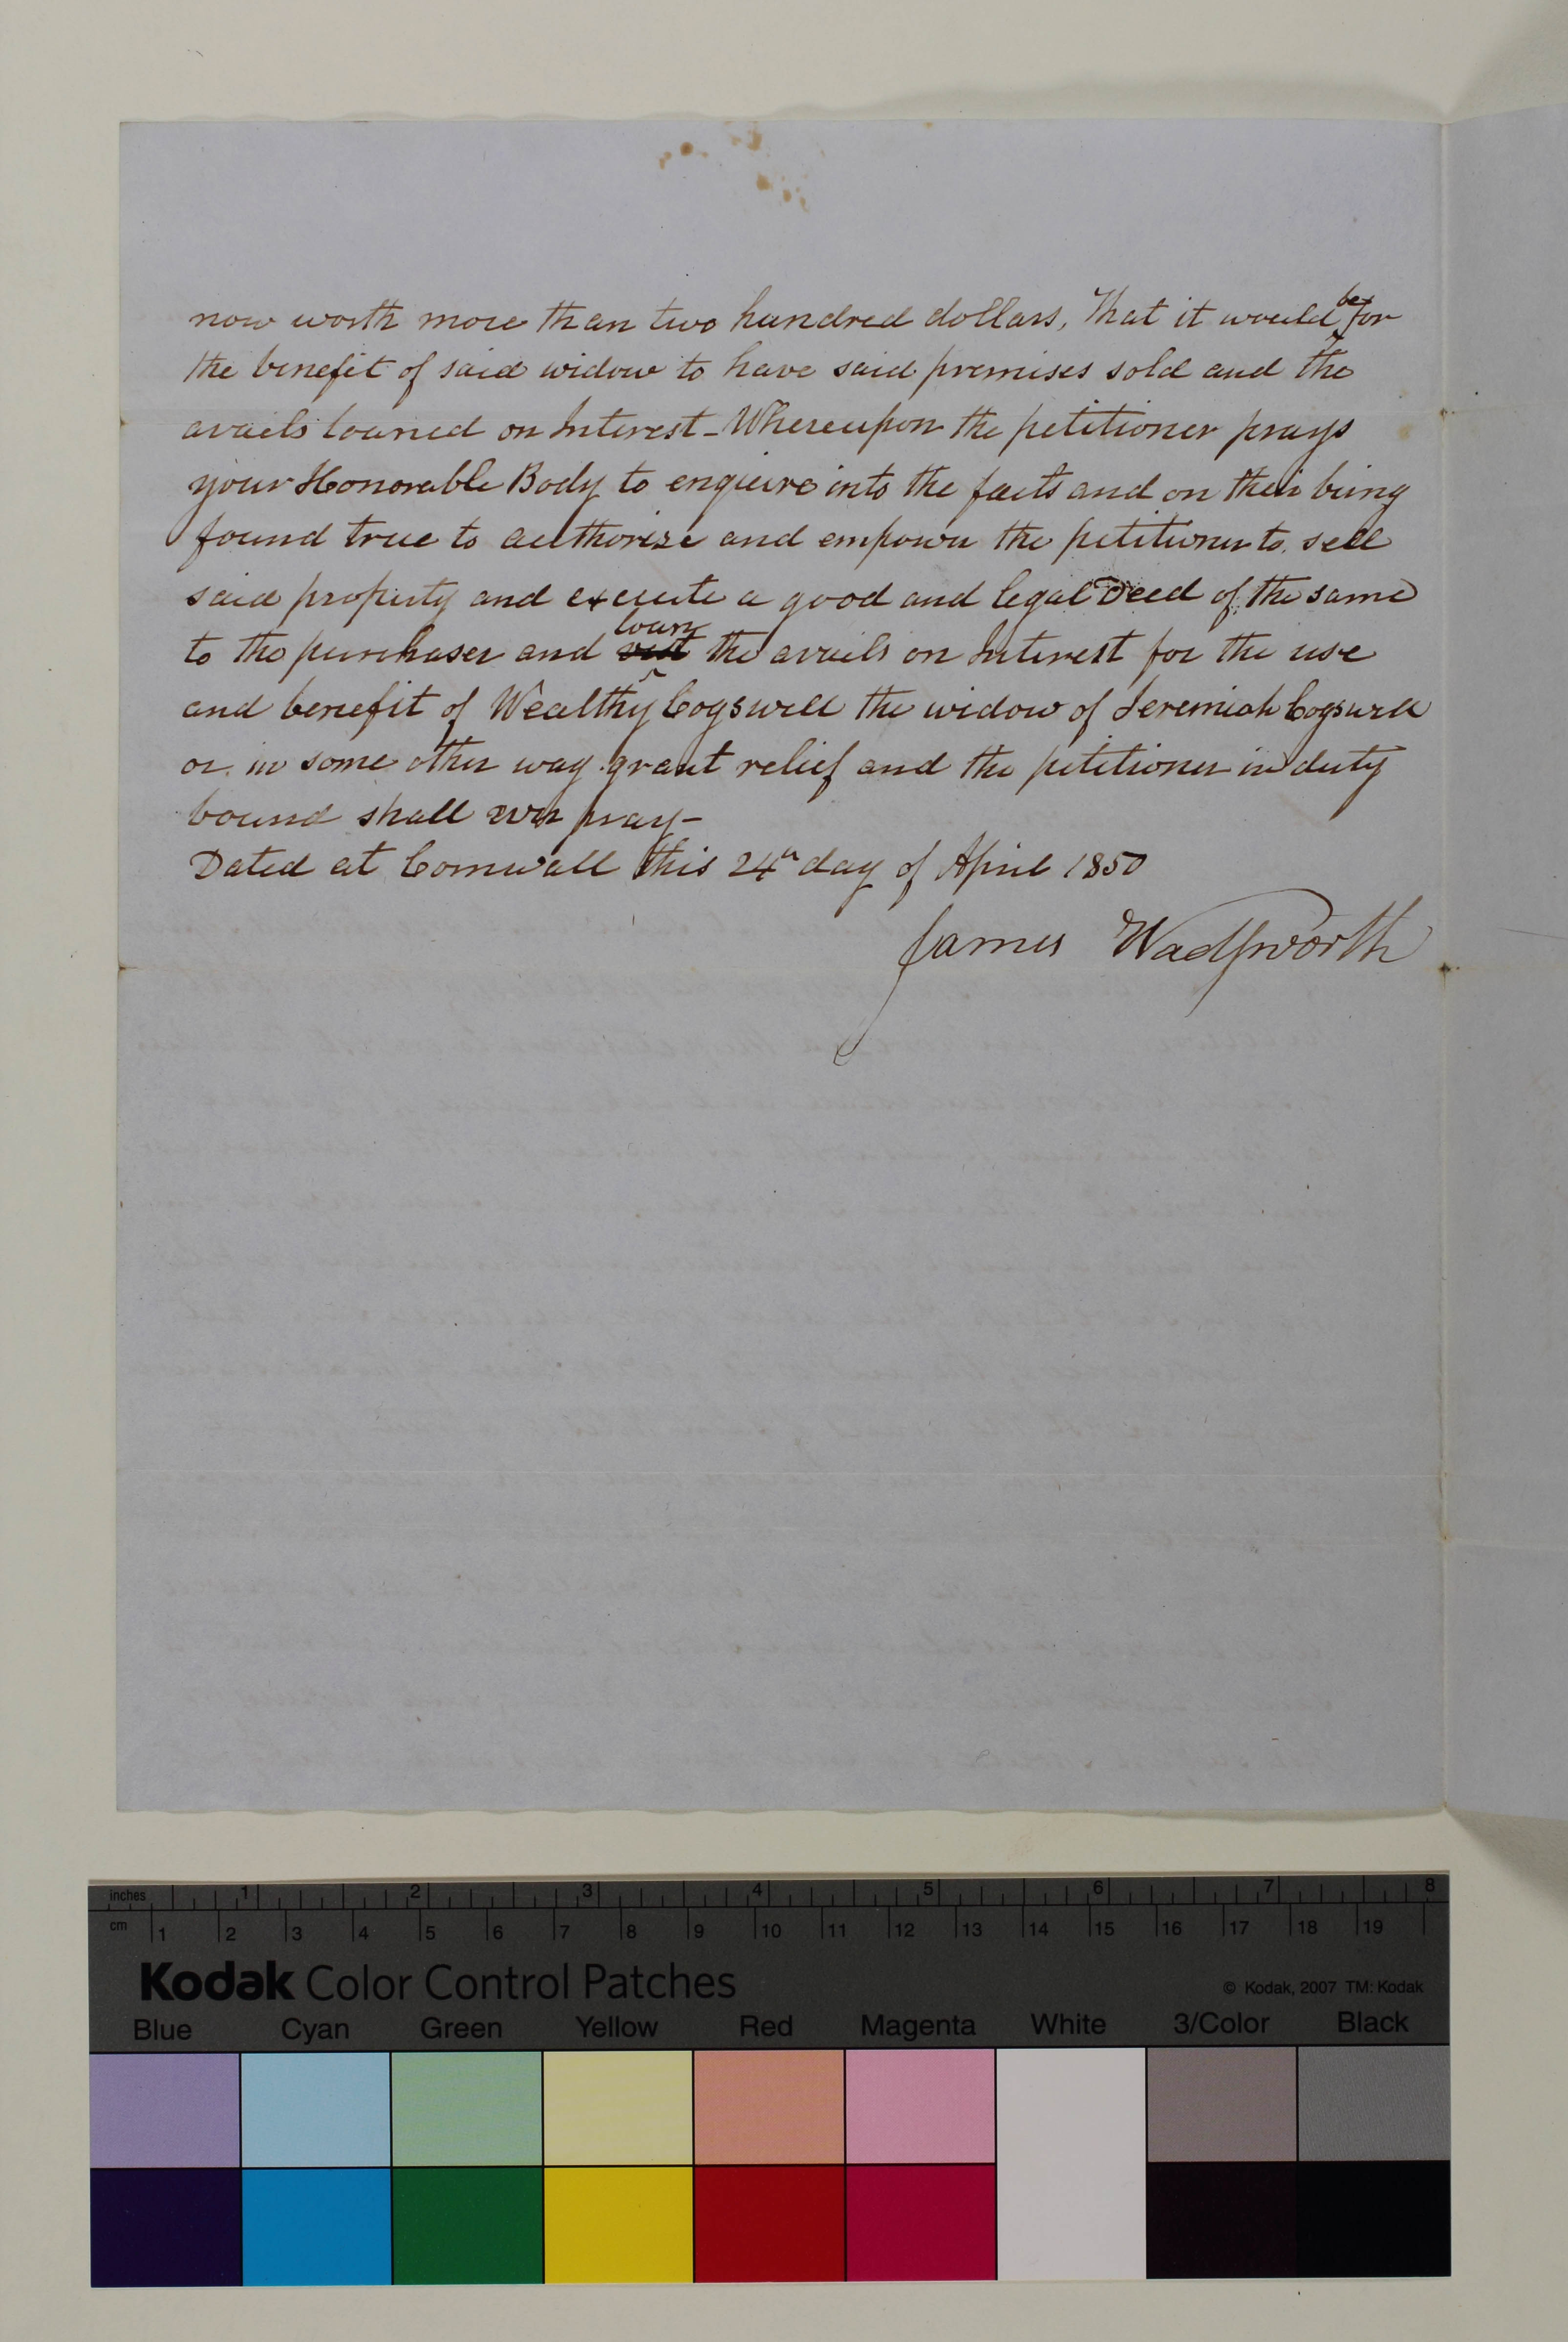 now worth more than two hundred dollars, That it would be for
the benefit of said widow to have said premises sold and the
avails loaned on Interest - Whereupon the petitioner prays
your Honorable Body to enquire into the facts and on their being
found true to authorize and empower the petitioner to sell
said property and execute a good and legal Deed of the same
to the purchaser and loan the avails on Interest for the use
and benefit of Wealthy Cogswell the widow of Jeremiah Cogswell
or in some other way grant relief and the petitioner in duty
bound shall ever pray -
Dated at Cornwall this 24th day of April 1850
James Wadsworth
inches 1 2 3 4 5 6 7 8
cm 1 2 3 4 5 6 7 8 9 10 11 12 13 14 15 16 17 18 19
Kodak Color Control Patches
© Kodak, 2007 TM: Kodak
Blue Cyan Green Yellow Red Magenta White 3/Color Black